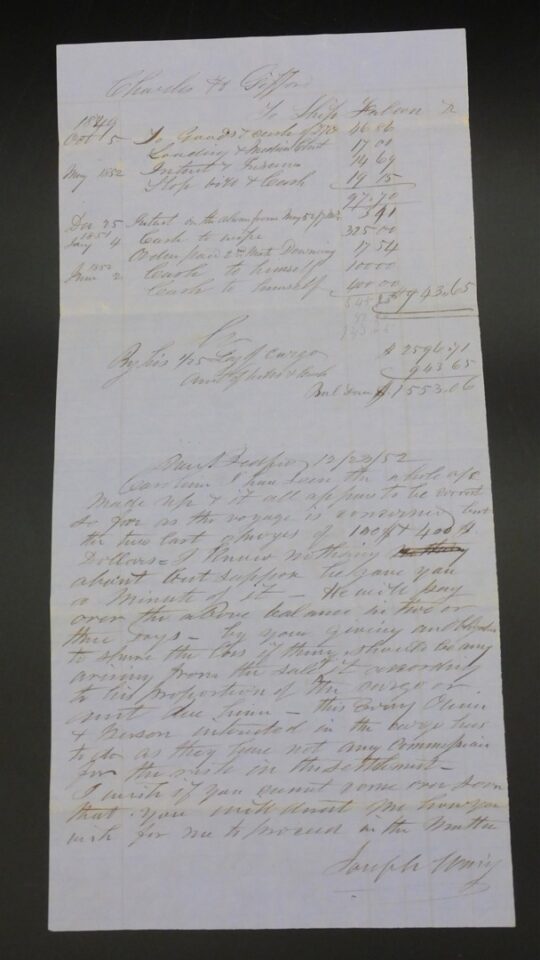 Charles H Gifford
To Ship Falcon Dr
1849
Oct 5 To Goods & Cash 46.56
Loading & 17 00
May 1852 Interest & 14 69
Slop bill & Cash 19 15
97.70
Dec 25 Interest on the above from May 52
1851
Jany 4 Cash to wife 325 00
Order paid 2nd Mate Downing 17 54
1852
June 2 Cash to himself 100 00
Cash to himself 400 00
$943.65
Cr
By his 1/25 Lay of Cargo $2596.71
amt of bills & Cash 943 65
Bal Due $1553.06
New Bedford 12/22/52
I have seen the whole a/c
made up & it all appears to be correct
so far as the voyage is concerned but
the two last charges of 100 $ & 400 $
Dollars = I know nothing
about but suppose he gave you
a Minute of it - He will pay
over the above balance in two or
three days - by your giving an obligation
to share the loss if there should be any
arising from the sale of it according
to his proportion of the cargo or
amt due him - this every Owner
& person interested in the cargo has
to do as they have not any Commission
for the risk in the settlement -
I wish if you cannot come over soon
that you will write me how you
wish for me to proceed in the Matter
Joseph